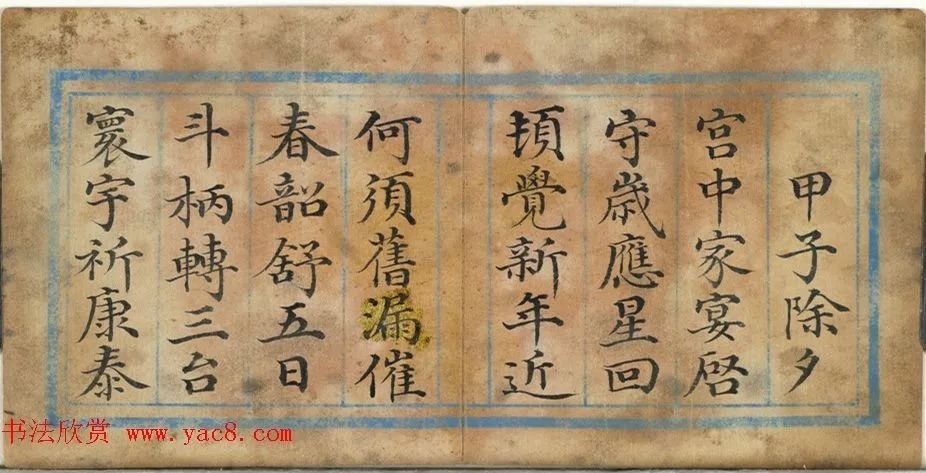 甲子除夕
宫中家宴啓
守歲應星回
頓覺新年近
何須舊漏催
春韶舒五日
斗柄轉三台
寰宇祈康泰
书法欣赏 www.yac8.com